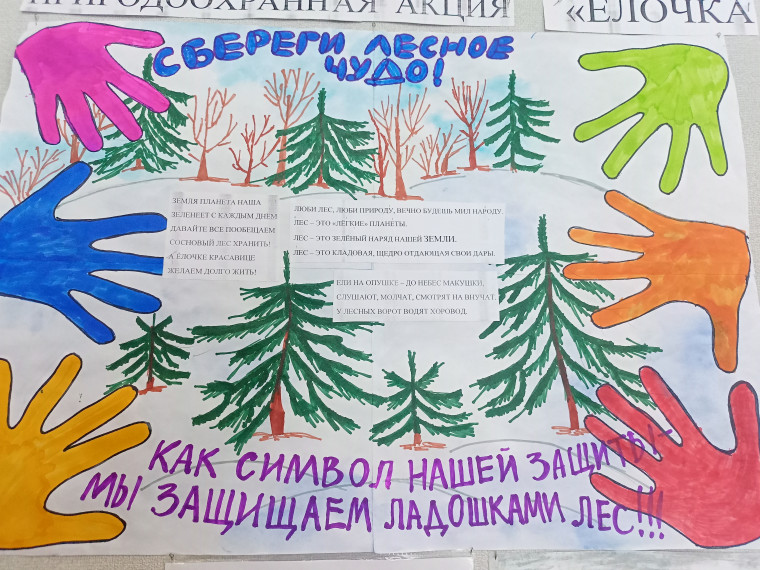 ПРИРОДООХРАННАЯ АКЦИЯ
«ЁЛОЧКА
СБЕРЕГИ ЛЕСНОЕ
ЧУДО!
ЗЕМЛЯ ПЛАНЕТА НАША
ЗЕЛЕНЕЕТ С КАЖДЫМ ДНЁМ
ДАВАЙТЕ ВСЕ ПООБЕЩАЕМ
СОСНОВЫЙ ЛЕС ХРАНИТЬ!
А ЁЛОЧКЕ КРАСАВИЦЕ
ЖЕЛАЕМ ДОЛГО ЖИТЬ!
ЛЮБИ ЛЕС, ЛЮБИ ПРИРОДУ, ВЕЧНО БУДЕШЬ МИЛ НАРОДУ.
ЛЕС – ЭТО «ЛЁГКИЕ» ПЛАНЕТЫ.
ЛЕС – ЭТО ЗЕЛЁНЫЙ НАРЯД НАШЕЙ ЗЕМЛИ.
ЛЕС – ЭТО КЛАДОВАЯ, ЩЕДРО ОТДАЮЩАЯ СВОИ ДАРЫ.
ЕЛИ НА ОПУШКЕ – ДО НЕБЕС МАКУШКИ,
СЛУШАЮТ, МОЛЧАТ, СМОТРЯТ НА ВНУЧАТ.
У ЛЕСНЫХ ВОРОТ ВОДЯТ ХОРОВОД.
КАК СИМВОЛ НАШЕЙ ЗАЩИТЫ-
МЫ ЗАЩИЩАЕМ ЛАДОШКАМИ ЛЕС!!!